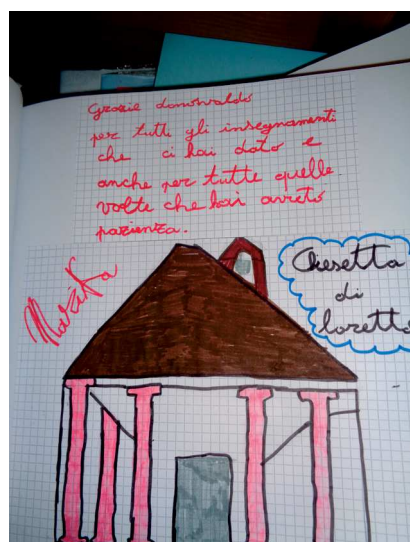 Grazie donosvaldo
per tutti gli insegnamenti
che ci hai dato e
anche per tutte quelle
volte che hai avuto
pazienza.
Marika
Chesetta
di
loretto